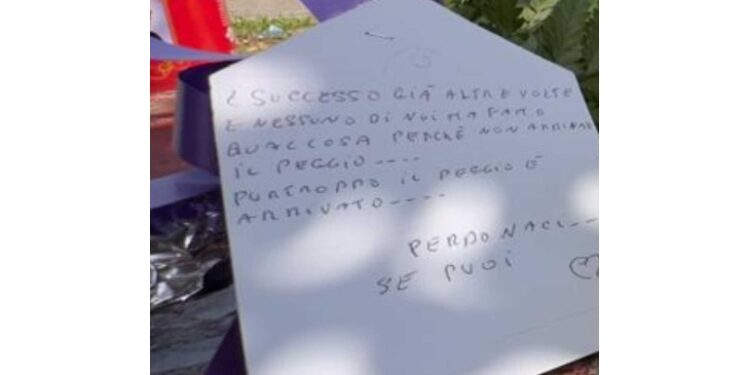 È SUCCESSO GIÀ ALTRE VOLTE
E NESSUNO DI NOI HA FATTO
QUALCOSA PERCHÈ NON ARRIVASSE
IL PEGGIO----
PURTROPPO IL PEGGIO È
ARRIVATO----
PERDONACI---
SE PUOI